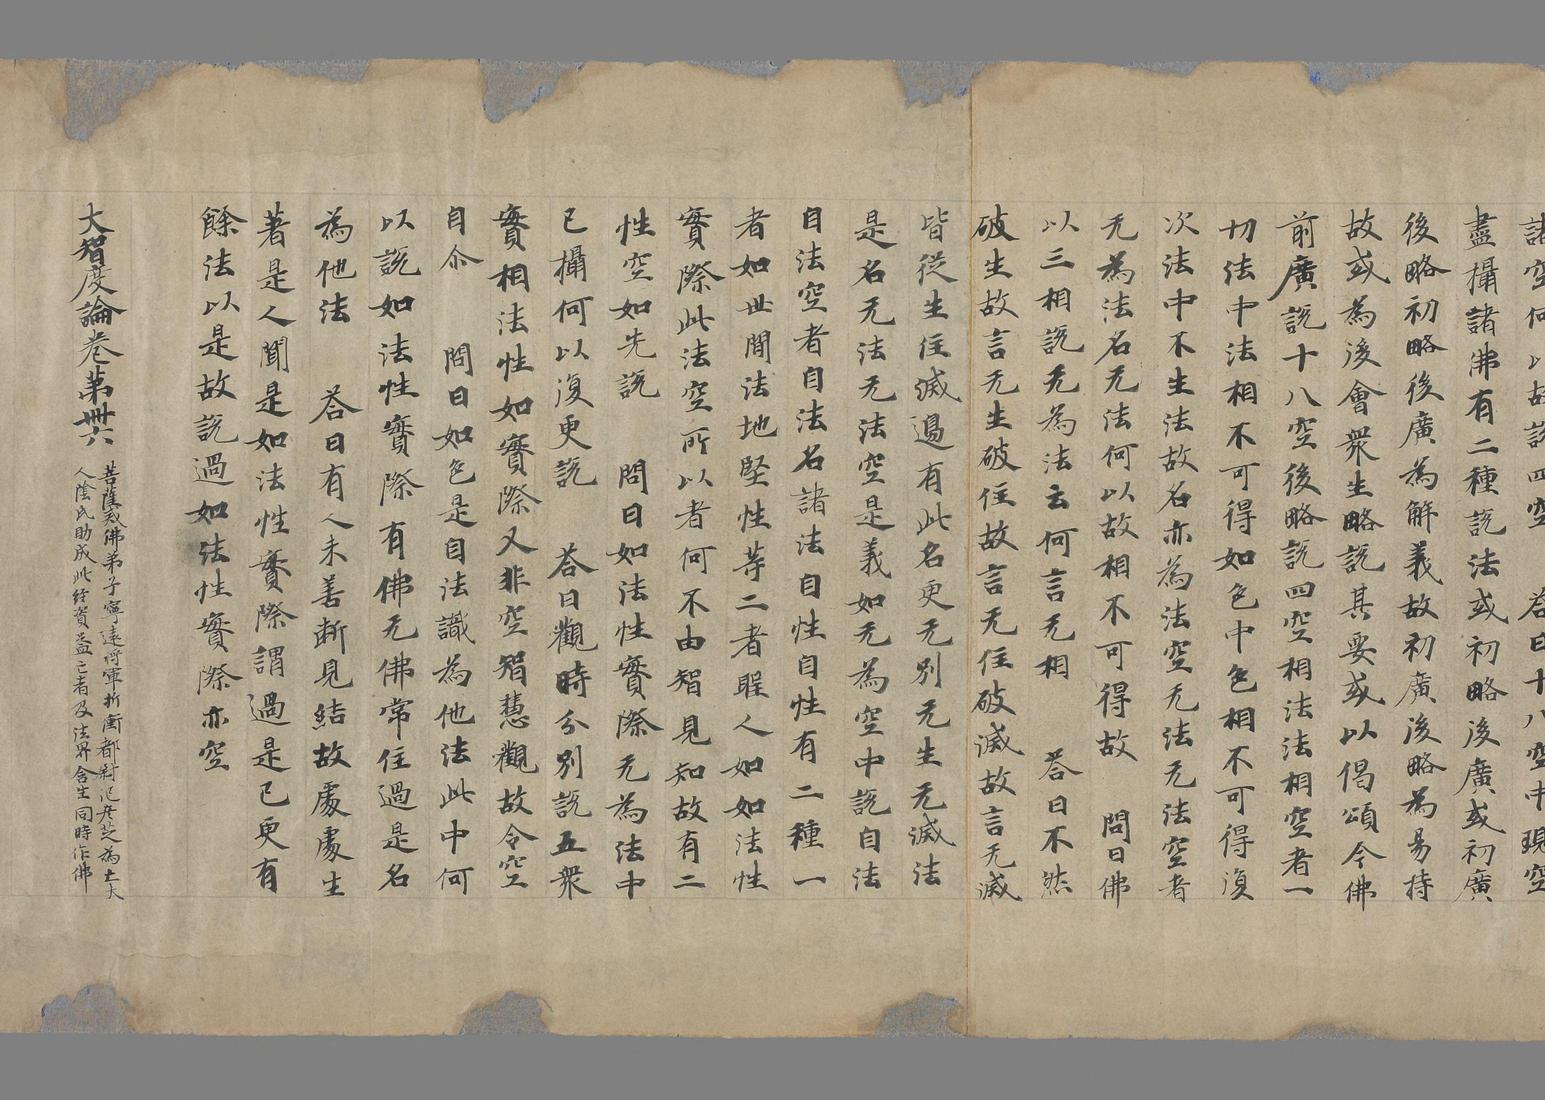 諸空何以故說四空　答曰十八空中現空
盡攝諸佛有二種說法或初略後廣或初廣
後略初略後廣為解義故初廣後略為易持
故或為後會眾生略說其要或以偈頌今佛
前廣說十八空後略說四空相法法相空者一
切法中法相不可得如色中色相不可得復
次法中不生法故名亦為法空无法无法空者
无為法名无法何以故相不可得故　問曰佛
以三相說无為法云何言无相　答曰不然
破生故言无生破住故言无住破滅故言无滅
皆從生住滅邊有此名更无別无生无滅法
是名无法无法空是義如无為空中說自法
自法空者自法名諸法自性自性有二種一
者如世間法地堅性等二者聖人如如法性
實際此法空所以者何不由智見知故有二
性空如先說　問曰如法性實際无為法中
已攝何以復更說　答曰觀時分別說五眾
實相法性如實際又非空智慧觀故令空
自尒　問曰如色是自法識為他法此中何
以說如法性實際有佛无佛常住過是名
為他法　答曰有人未善斷見結故處處生
著是人聞是如法性實際謂過是已更有
餘法以是故說過如法性實際亦空
大智度論卷第卌六
菩薩戒佛弟子寧遠將軍折衝都尉氾彥芝為亡大
人陰氏助成此經資益亡者及法界含生同時作佛